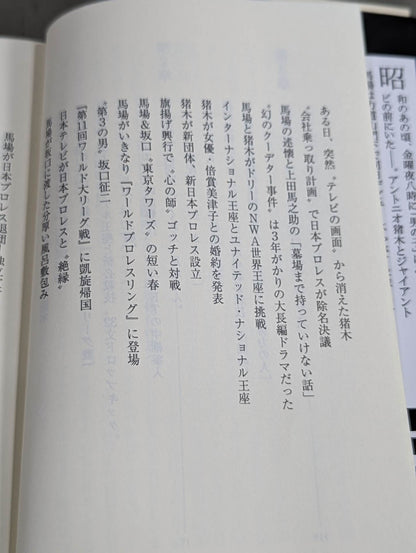 昭
和のあの頃、金曜夜8時に
ビの前にいた――アントニオ猪木とジャイアント
ある日、突然〝テレビの画面〟から消えた猪木
〝会社乗っ取り計画〟で日本プロレスが除名決議
馬場の述懐と上田馬之助の「墓場まで持っていけない話」
〝幻のクーデター事件〟は3年がかりの大長編ドラマだった
馬場と猪木がドリーのNWA世界王座に挑戦
インターナショナル王座とユナイテッド・ナショナル王座
猪木が女優・倍賞美津子との婚約を発表
猪木が新団体、新日本プロレス設立
旗揚げ興行で〝心の師〟ゴッチと対戦
馬場&坂口〝東京タワーズ〟の短い春
馬場がいきなり『ワールドプロレスリング』に登場
〝第3の男〟坂口征二
『第11回ワールド大リーグ戦』に凱旋帰国
日本テレビが日本プロレスと〝絶縁〟
馬場が坂口に渡した分厚い風呂敷包み
馬場が日本プロレス退団